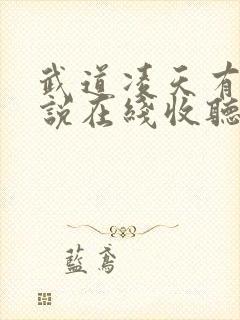 武道凌天有
說在綫收聽
藍鳶